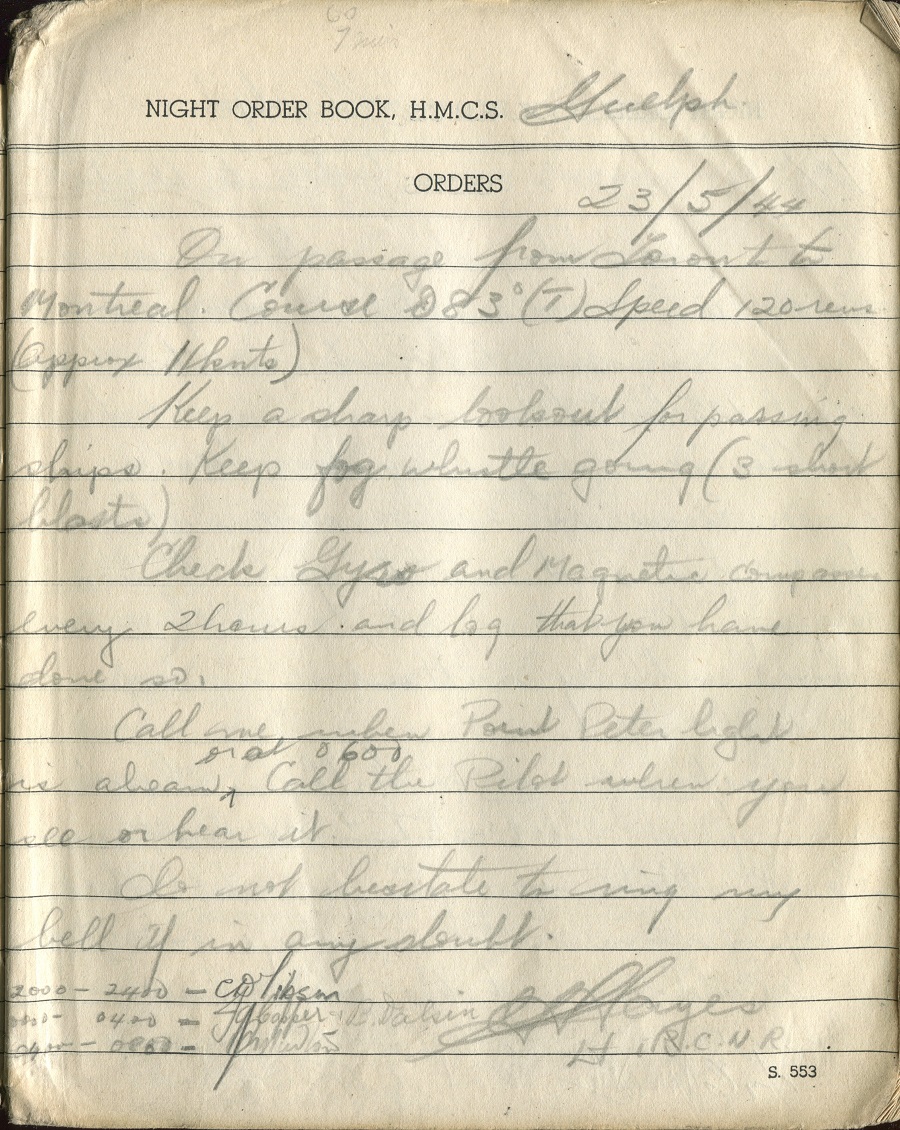 60
7
NIGHT ORDER BOOK, H.M.C.S. Guelph.
ORDERS
23/5/44
On passage from Toronto to
Montreal. Course 083°(T) Speed 120 revs
(Approx 11 knts)
Keep a sharp lookout for passing
ships. Keep fog whistle going (3 short
blasts)
Check Gyro and Magnetic compasses
every 2 hours and log that you have
done so.
Call me when Point Peter light
or at 0600
is abeam, Call the Pilot when you
see or hear it.
Do not hesitate to ring my
bell if in any doubt.
2000 - 2400 - Gibson
0000 - 0400 - Cooper
0400 - 0800 -
Hayes
Lt. R.C.N.R.
S. 553